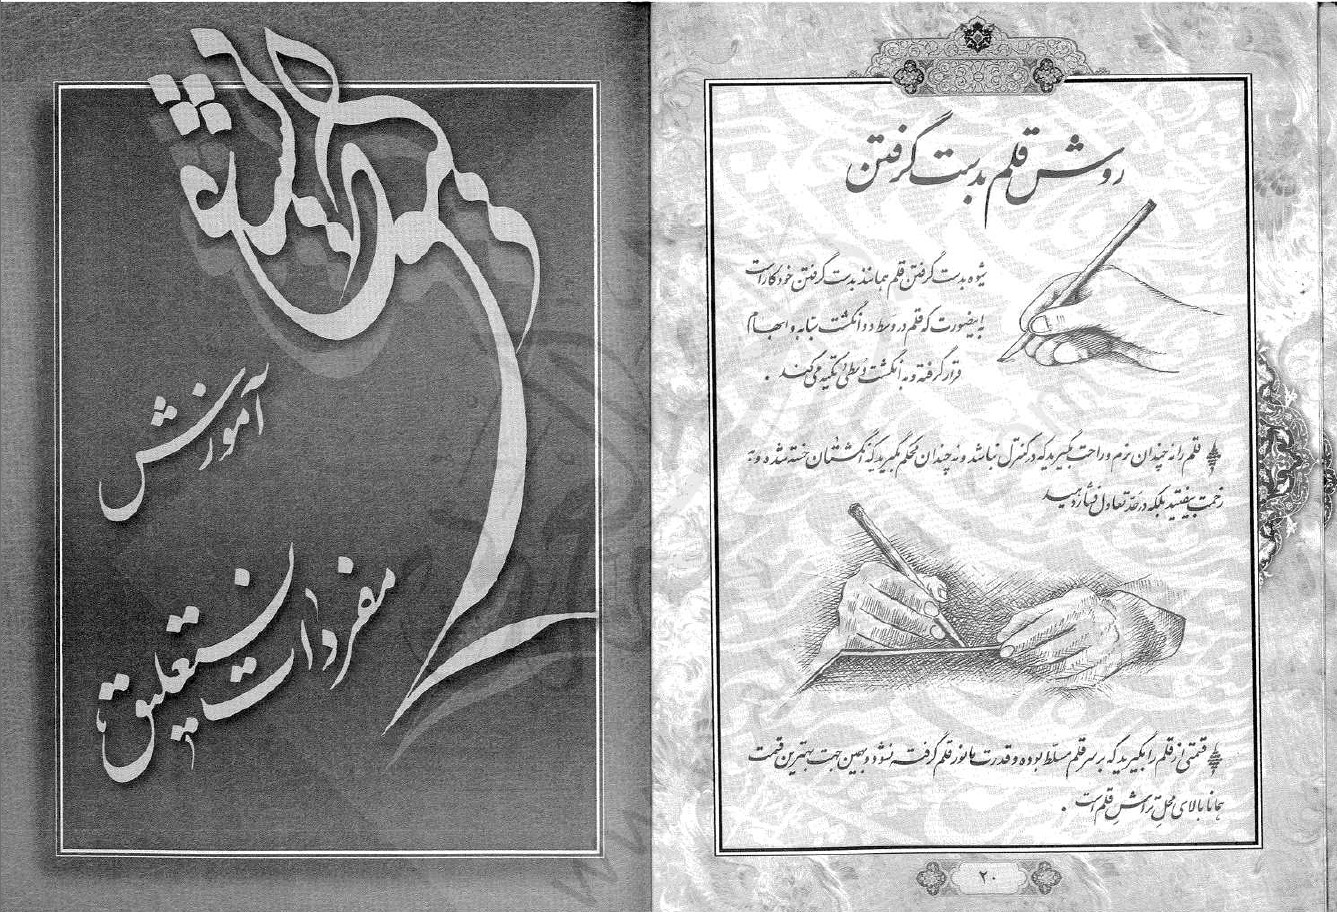 روش قلم بدست گرفتن
شیوه بدست گرفتن قلم همانند بدست گرفتن خودکار است
به اینصورت که قلم در وسط دو انگشت سبابه و ابهام
قرار گرفته و به انگشت وُسطی تکیه می‌کند .
قلم را نه چندان نرم و راحت بگیرید که در کنترل نباشد و نه چندان محکم بگیرید که انگشتان خسته شده و به
زحمت بیفتید بلکه در حدّ تعادل فشار دهید
قسمتی از قلم را بگیرید که بر سر قلم مسلّط بوده و قدرت مانور قلم گرفته نشود و بهمین جهت بهترین قسمت
همانا بالای محلّ تراشِ قلم است .
۲۰
آموزش
مفردات
نستعلیق